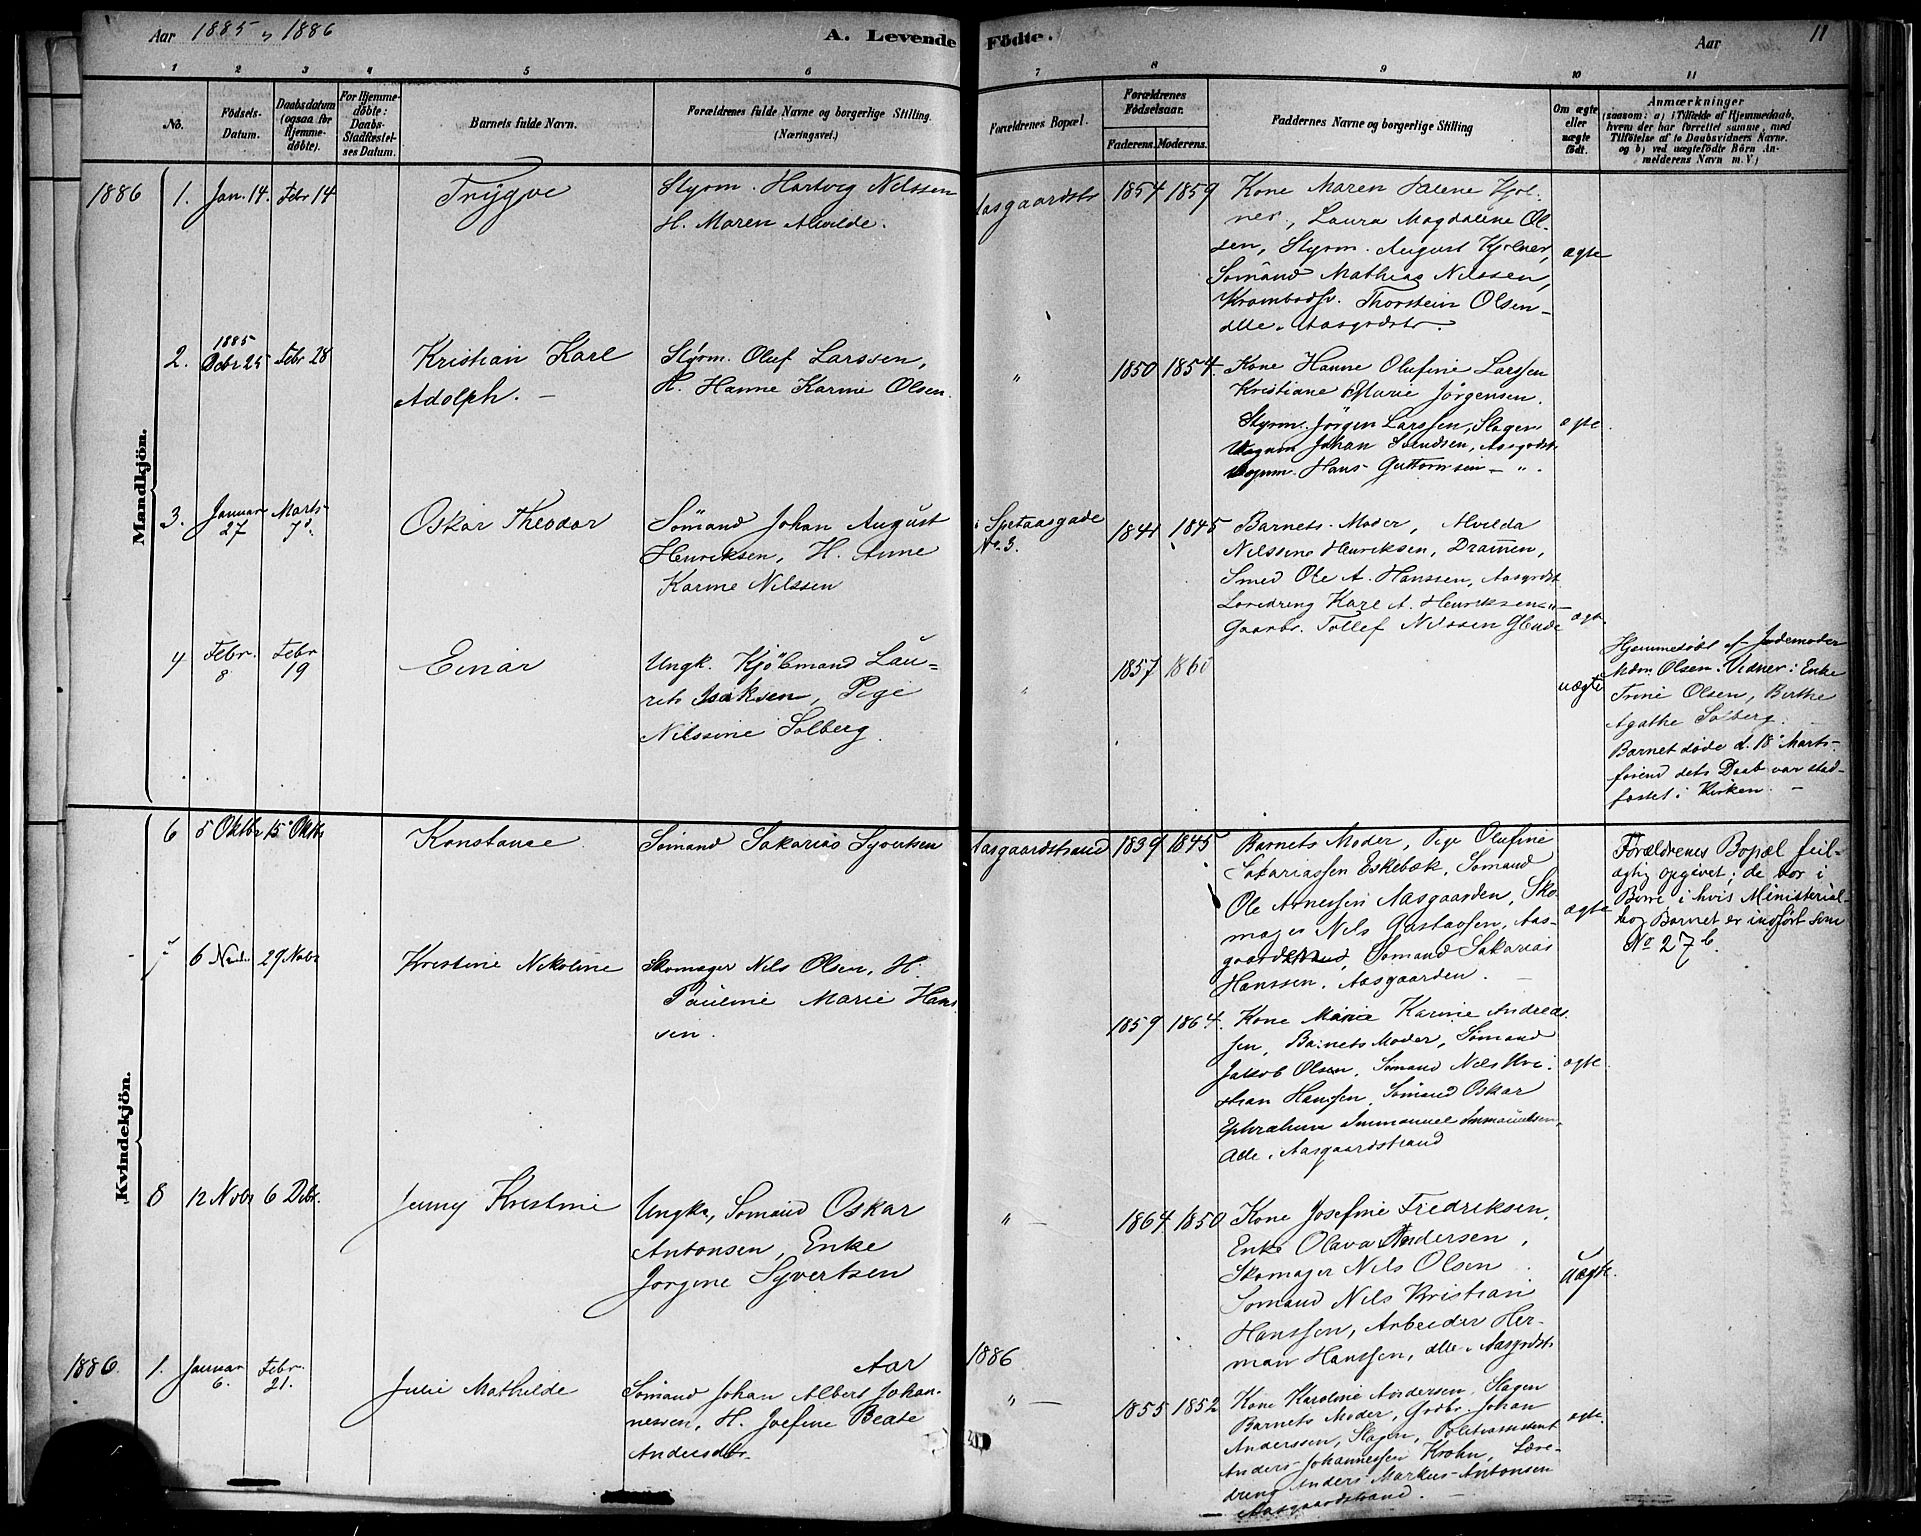 Aar 1885 & 1886
A. Levende Födte.
Aar
11
1 2 3 4 5 6 7 8 9 10 11
No.
Födsels-Datum.
Daabsdatum (ogsaa for Hjemmedöbte).
For Hjemmedöbte: Daabs-Stadfæstelses Datum.
Barnets fulde Navn.
Forældrenes fulde Navne og borgerlige Stilling.
(Næringsvei.)
Forældrenes Bopæl.
Forældrenes Födselsaar.
Faderens. Moderens.
Faddernes Navne og borgerlige Stilling
Om ægte eller uægte födt.
Anmærkninger
(saasom: a) i Tilfælde af Hjemmedaab,
hvem der har forrettet samme, med
Tilföielse af to Daabsvidners Navne,
og b) ved uægtefödte Börn Anmelderens Navn m. V.)
Mandkjön.
1886 1. Jan. 14. Febr 14
Trygve
Styrm. Hartvig Nilssen
H. Maren Alvilde.
Aasgaardstr
1854 1859
Kone Maren Helene Kjøl-
ner, Laura Magdalene Ol-
sen, Styrm. August Kjølner,
Sømand Mathias Nilssen,
Krambodsv. Thorstein Olsen –
alle Aasgrdstr.
ægte
2. 1885 Decbr 25 Febr 28
Kristian Karl
Adolph. –
Styrm. Oluf Larssen,
H. Hanne Karine Olsen.
"
1850 1854
Kone Hanne Olufine Larssen
Kristiane Marie Jörgensen.
Styrm. Jörgen Larssen, Slagen
Johan Svendsen, Aasgrdstr.
Hans Guttormsen – " .
ægte
3. Januar 27 Marts 7d
Oskar Theodor
Sömand Johan August
Henriksen, H. Anne
Karine Nilssen
No. 3.
1841 1845
Barnets Moder, Alvilda
Nilssine Henriksen, Drammen,
Smed Ole A. Hanssen, Aasgrdst
Karl A. Henriksen "–
Gaarbr. Tollef Nilssen
ægte.
4 Febr. 8 Febr 19
Einar
Ungk. Kjöbmand Lau-
rets Isaksen, Pige
Nilssine Solberg.
"
1857 1860
uægte
Hjemmedöbt af Jordemoder
Mdm. Olsen. Vidner: Enke
Trine Olsen, Berthe
Agathe Solberg.
Barnet döde d. 18 Marts
forend dets Daab var stad-
fæstet i Kirken. –
Kvindekjön.
6 5 Oktbr 15 Oktbr
Konstance
Sömand Sakarias Syvertsen
Aasgaardstrand
1839 1845
Barnets Moder, Pige Olufine
Sakariassen Eskebæk, Sömand
Ole Arnessen Aasgaarden, Sko-
mager Nils Gustavsen, Aas-
gaardstrand, Sömand Sakarias
Hanssen, Aasgaarden. –
ægte
Forældrenes Bopæl feil-
agtig opgivet; de bor i
Borre i hvis Ministerial-
bog Barnet er indført som
No 27 b.
7 6 29 Novbr
Kristine Nikoline
Skomager Nils Olsen, H.
Pauline Marie Hans
sen.
1859 1864
Kone Marie Karine Andreas
sen, Barnets Moder, Sömand
Jakob Olsen, Sömand Nils Kri-
stian Hanssen, Sömand Oskar
Ephraham Immanuel Immanuelsen,
Alle Aasgaardstrand
ægte
8 12 Novbr 6 Debr.
Jenny Kristine
Ungka, Sömand Oskar
Antonsen, Enke
Jorgine Syvertsen
" –
1864 1850
Kone Josefine Fredriksen,
Enke Olava Andersen,
Skomager Nils Olsen
Sömand Nils Kristian
Hanssen, Arbeider Her-
man Hanssen, alle Aasgrdstr.
uægte.
Aar 1886
1886. 1. Januar 6. Febr. 21.
Julie Mathilde
Sömand Johan Albert Johan-
nessen, H. Josefine Beate
Andersdtr.
" –
1855 1852
Kone Karoline Andersen, Slagen
Barnets Moder, Grdbr. Johan
Anderssen, Slagen, Politiassistent
Anders Johannessen Krohn, Lære-
dreng Anders Markus Antonsen
Aasgaardstrand. –
ægte.